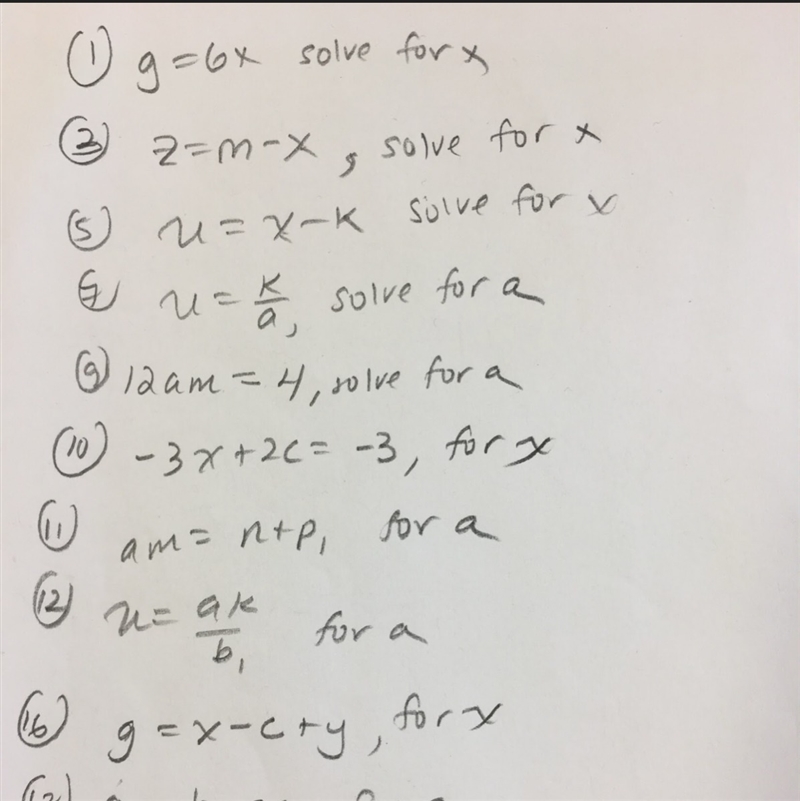 (1) g = 6x solve for x
(3) z = m - x, solve for x
(5) u = x - k solve for x
(7) u = k/a, solve for a
(9) 12am = 4, solve for a
(10) -3x + 2c = -3, for x
(11) am = n + p, for a
(12) u = ak/b, for a
(16) g = x - c + y, for x